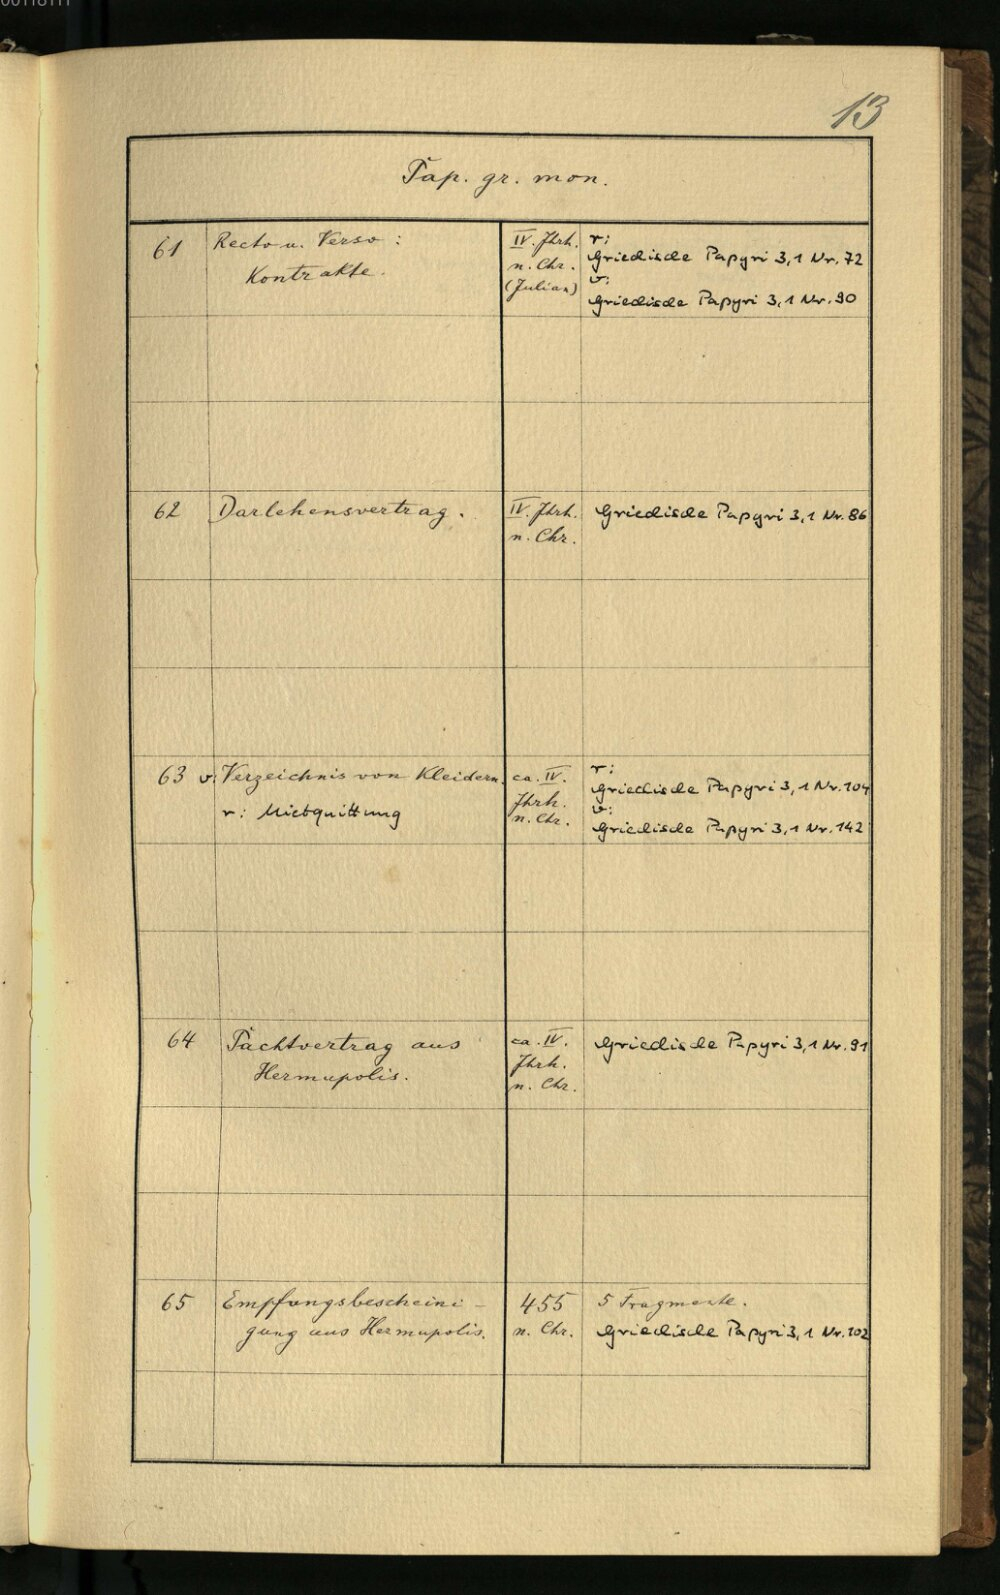 13
Pap. gr. mon.
61 Recto u. Verso :
Kontrakte.
IV. Jhrh.
n. Chr.
(Julian)
r:
Griechische Papyri 3,1 Nr. 72
v:
Griechische Papyri 3,1 Nr. 90
62 Darlehensvertrag.
IV. Jhrh.
n. Chr.
Griechische Papyri 3,1 Nr. 86
63 v: Verzeichnis von Kleidern.
r: Mietquittung
ca. IV.
Jhrh.
n. Chr.
r:
Griechische Papyri 3,1 Nr. 104
v:
Griechische Papyri 3,1 Nr. 142
64 Pachtvertrag aus
Hermupolis.
ca. IV.
Jhrh.
n. Chr.
Griechische Papyri 3,1 Nr. 91
65 Empfangsbescheini-
gung aus Hermupolis.
455
n. Chr.
5 Fragmente.
Griechische Papyri 3,1 Nr. 102